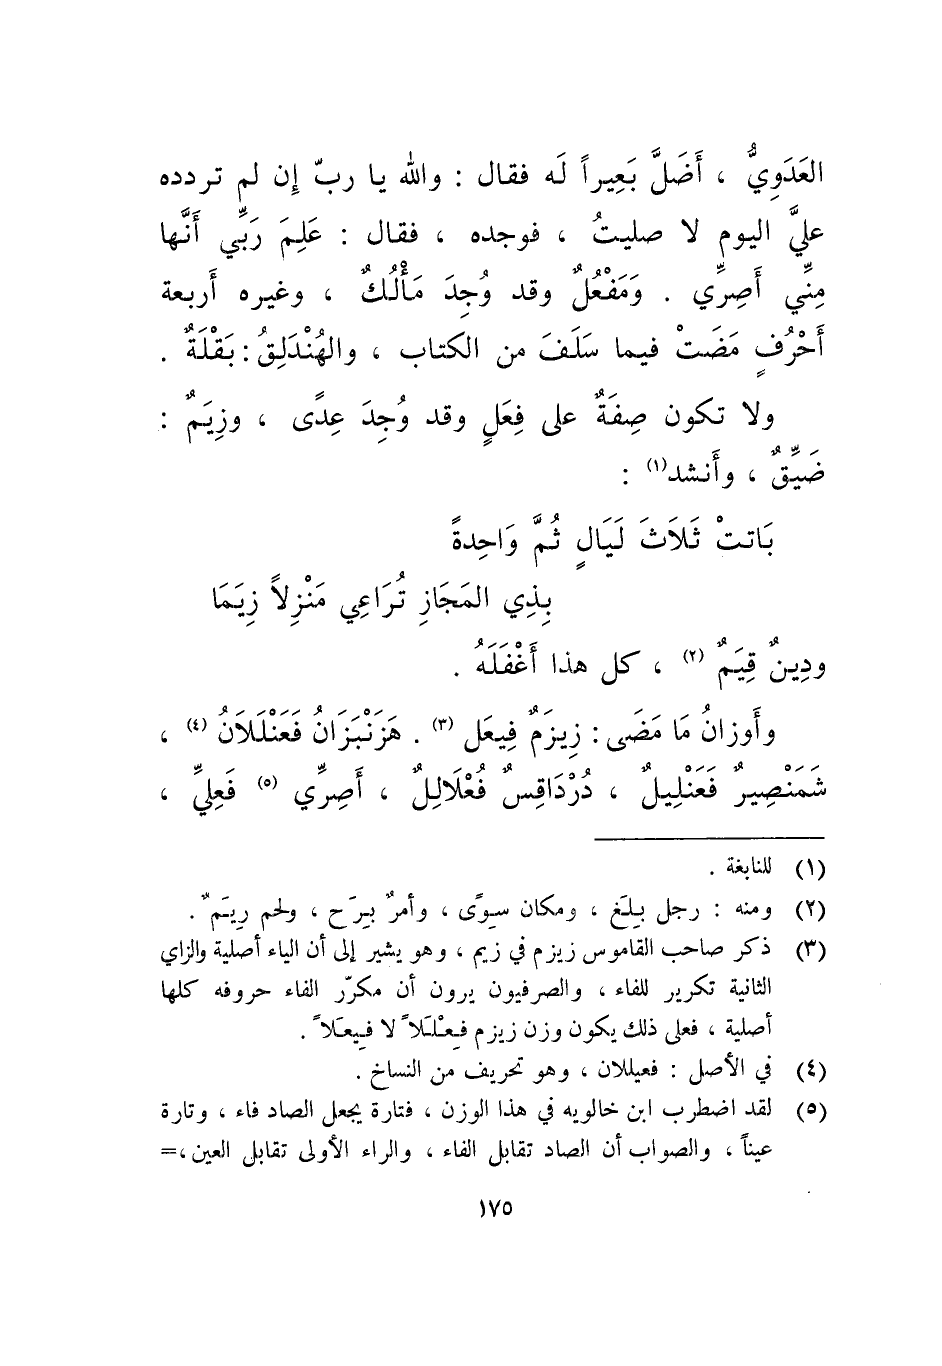 العَدَوِيُّ ، أَضَلَّ بَعِيراً لَه فقال : والله يا ربّ إِن لم تردده
عليَّ اليوم لا صليتُ ، فوجده ، فقال : عَلِمَ رَبِّي أَنَّها
مِنِّي أَصِرِّي . وَمَفْعُلٌ وقد وُجِدَ مَأْلُكٌ ، وغيره أَربعة
أَحْرُفٍ مَضَتْ فيما سَلَفَ من الكتاب ، والهُنْدَلِقُ : بَقْلَةٌ .
ولا تكون صِفَةٌ على فِعَلٍ وقد وُجِدَ عِدًى ، وزِيَمٌ :
ضَيِّقٌ ، وأَنشد(١) :
بَاتتْ ثَلَاثَ لَيَالٍ ثُمَّ وَاحِدةً
بِذِي المَجَازِ تُرَاعِي مَنْزِلاً زِيَمَا
ودِينٌ قِيَمٌ (٢) ، كل هذا أَغْفَلَهُ .
وأَوزانُ مَا مَضَى : زِيزَمٌ فِيعَل (٣) . هَزَنْبَزَانُ فَعَنْلَلَانُ (٤) ،
شَمَنْصِيرٌ فَعَنْلِيلٌ ، دُرْدَاقِسٌ فُعْلَالِلٌ ، أَصِرِّي (٥) فَعِلِّي ،
(١) للنابغة .
(٢) ومنه : رجل بِلَغ ، ومكان سِوًى ، وأمرٌ بِرَح ، ولحم رِيَم ٌ .
(٣) ذكر صاحب القاموس زيزم في زيم ، وهو يشير إلى أن الياء أصلية والزاي
الثانية تكرير للفاء ، والصرفيون يرون أن مكرّر الفاء حروفه كلها
أصلية ، فعلى ذلك يكون وزن زيزم فِعْلَلاً لا فِيعَلاً .
(٤) في الأصل : فعيللان ، وهو تحريف من النساخ .
(٥) لقد اضطرب ابن خالويه في هذا الوزن ، فتارة يجعل الصاد فاء ، وتارة
عيناً ، والصواب أن الصاد تقابل الفاء ، والراء الأولى تقابل العين ،=
١٧٥